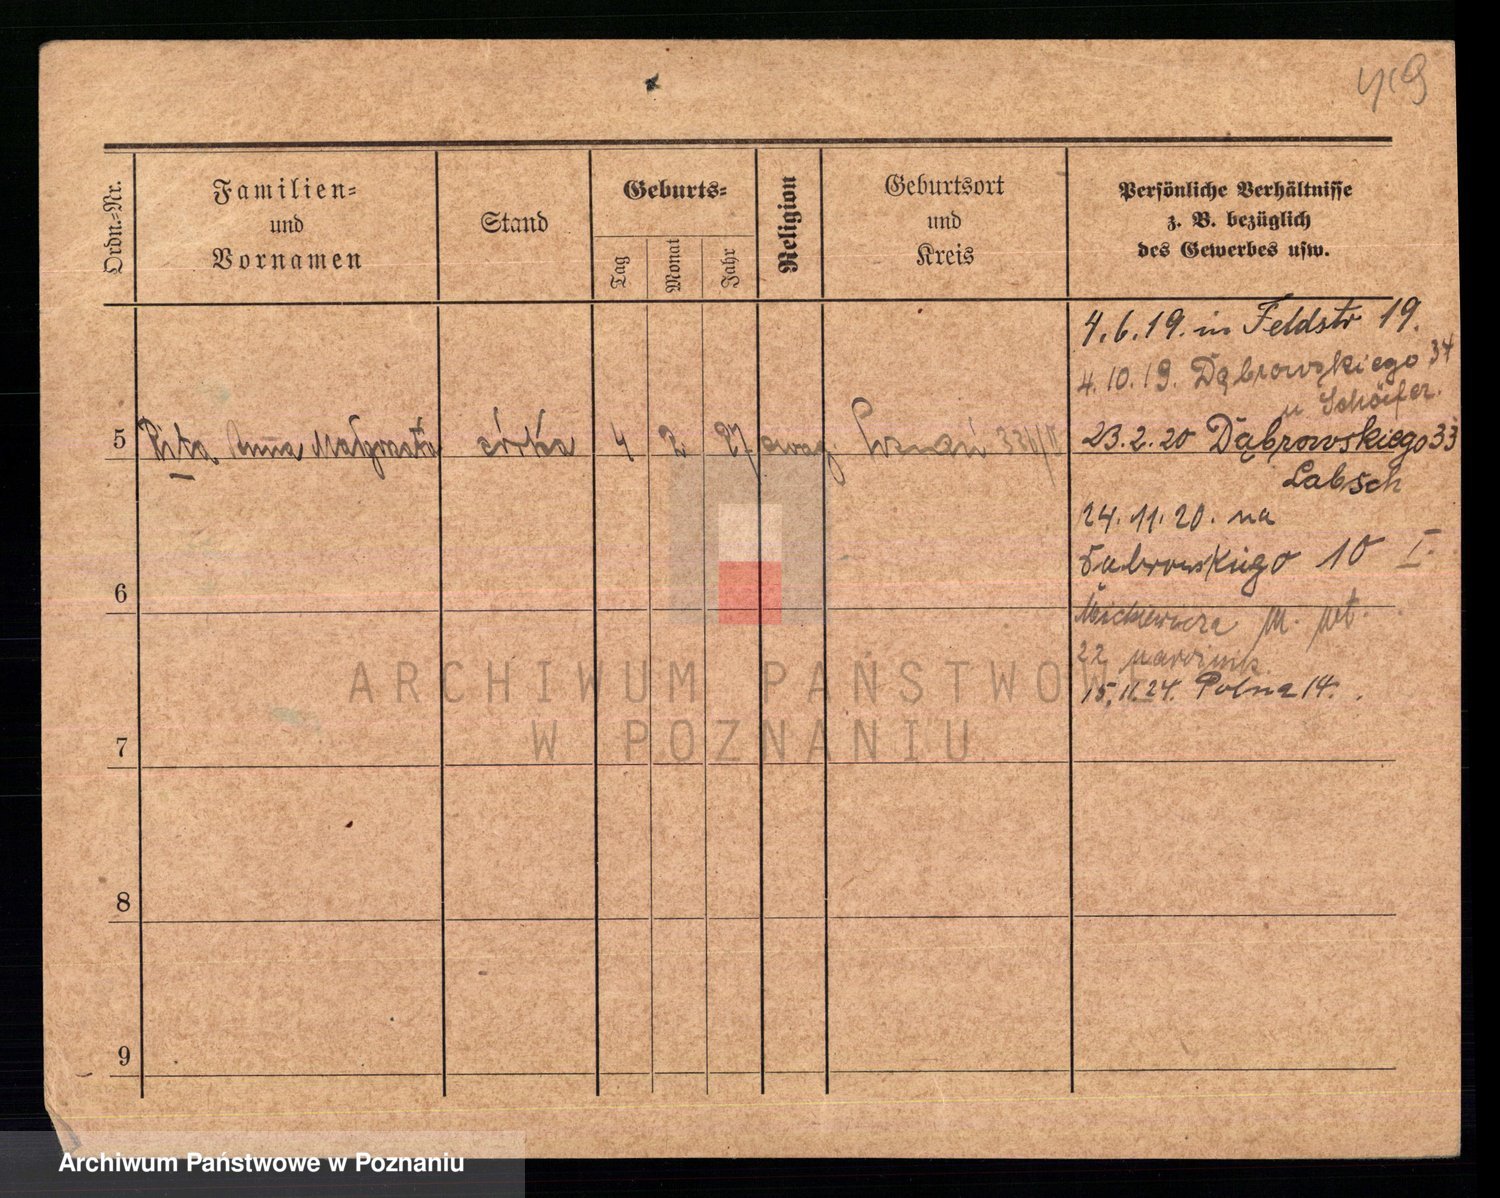 49
Ordn.=Nr.
Familien=
und
Vornamen
Stand
Geburts=
Tag
Monat
Jahr
Religion
Geburtsort
und
Kreis
Persönliche Verhältnisse
z. B. bezüglich
des Gewerbes usw.
4.6.19. in Feldstr 19.
4.10.19. Dąbrowskiego 34
u Schöifer.
5 Rita Anna Małgorzata córka 4 2 27 ewag. Poznań 23.2.20 Dąbrowskiego 33
Labsch
24.11.20. na
Dąbrowskiego 10 I.
6
Mickiewicza
22
15.11.24. Polna 14.
7
8
9
ARCHIWUM PAŃSTWOWE
W POZNANIU
Archiwum Państwowe w Poznaniu